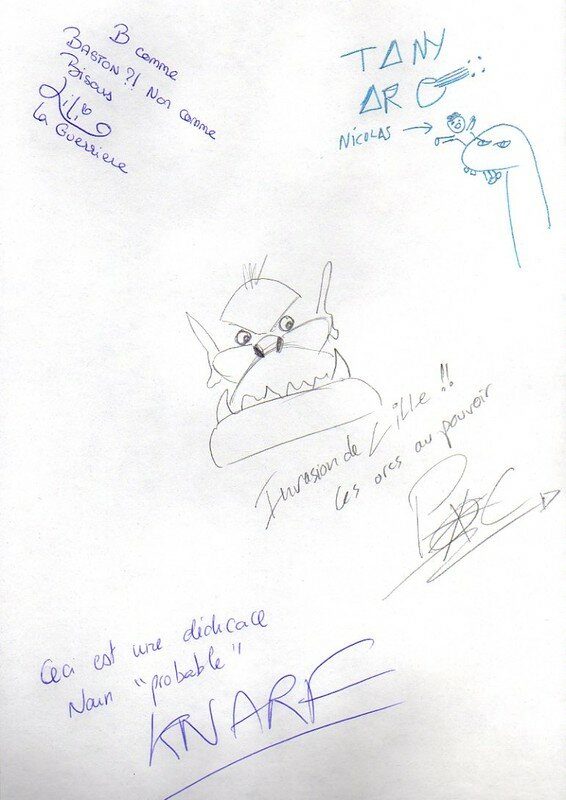 B comme
BASTON ?! Non comme
Bisous
Lili
La Guerriere
TANY
ARO
NICOLAS
Invasion de Lille !!
Les orcs au pouvoir
Ceci est une dédicace
Nain "probable"
KNARF